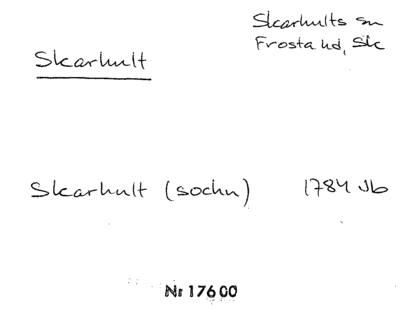 Skarhults sn
Frosta hd, Sk
Skarhult
Skarhult (sochn) 1784 Jb
Nr 17600